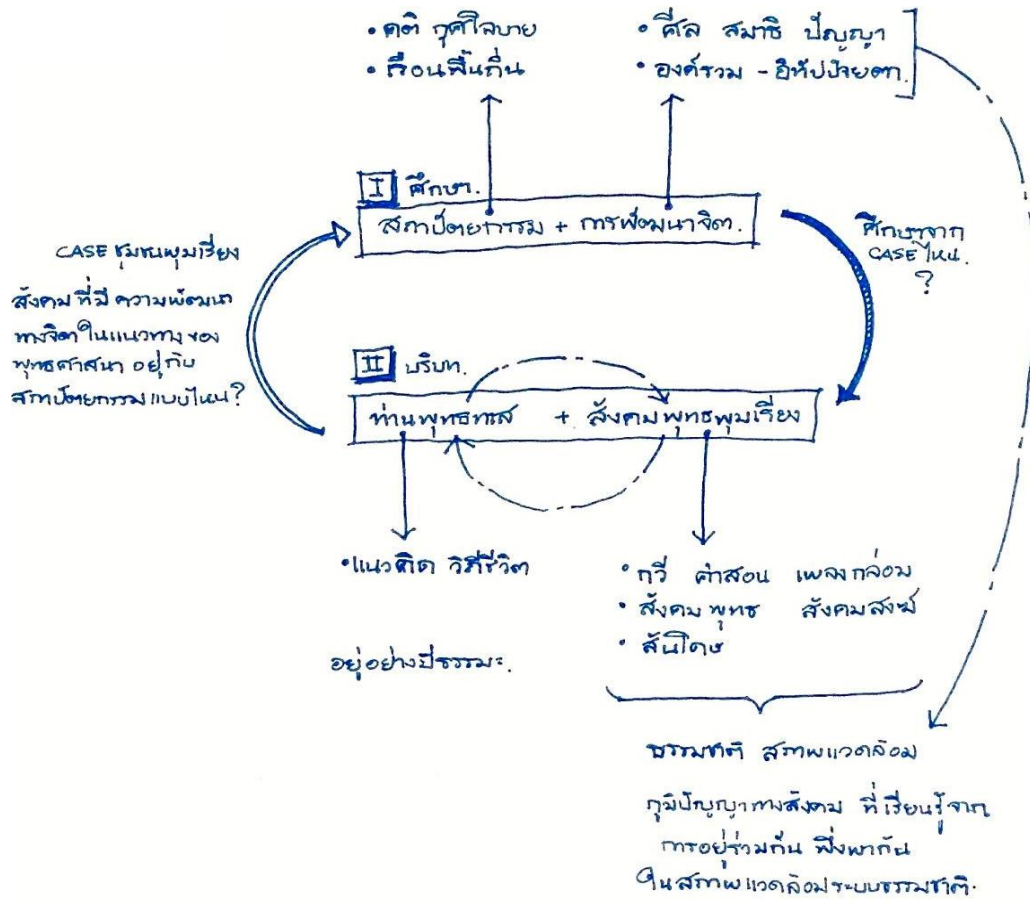 • คติ กุศโลบาย
• เรือนพื้นถิ่น
• ศีล สมาธิ ปัญญา
• องค์รวม - อิทัปปัจยตา.
I ศึกษา.
สถาปัตยกรรม + การพัฒนาจิต.
CASE ชุมชนพุมเรียง
สังคมที่มีความพัฒนา
ทางจิตในแนวทางของ
พุทธศาสนา อยู่กับ
สถาปัตยกรรมแบบไหน?
ศึกษาจาก
CASE ไหน.
?
II บริบท.
ท่านพุทธทาส + สังคมพุทธพุมเรียง
• แนวคิด วิถีชีวิต
อยู่อย่างมีธรรมะ.
• กวี คำสอน เพลงกล่อม
• สังคมพุทธ สังคมสงฆ์
• สันโดษ
ธรรมชาติ สภาพแวดล้อม
ภูมิปัญญาทางสังคม ที่เรียนรู้จาก
การอยู่ร่วมกัน พึ่งพากัน
ในสภาพแวดล้อมระบบธรรมชาติ.